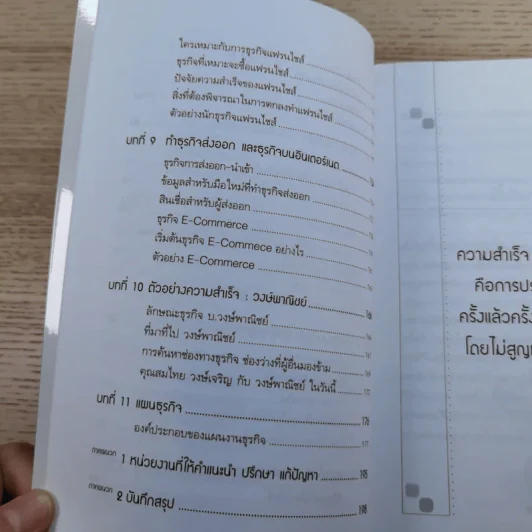 ใครเหมาะกับการธุรกิจแฟรนไชส์
ธุรกิจที่เหมาะจะซื้อแฟรนไชส์
ปัจจัยความสำเร็จของแฟรนไชส์
สิ่งที่ต้องพิจารณาในการตกลงทำแฟรนไชส์
ตัวอย่างนักธุรกิจแฟรนไชส์
บทที่ 9 ทำธุรกิจส่งออก และธุรกิจบนอินเตอร์เนต
ธุรกิจการส่งออก-นำเข้า
ข้อมูลสำหรับมือใหม่ที่ทำธุรกิจส่งออก
สินเชื่อสำหรับผู้ส่งออก
ธุรกิจ E-Commerce
เริ่มต้นธุรกิจ E-Commece อย่างไร
ตัวอย่าง E-Commerce
บทที่ 10 ตัวอย่างความสำเร็จ : วงษ์พาณิชย์
ลักษณะธุรกิจ บ.วงษ์พาณิชย์
ที่มาที่ไป วงษ์พาณิชย์
การค้นหาช่องทางธุรกิจ ช่องว่างที่ผู้อื่นมองข้าม
คุณสมไทย วงษ์เจริญ กับ วงษ์พาณิชย์ ในวันนี้
บทที่ 11 แผนธุรกิจ 176
องค์ประกอบของแผนงานธุรกิจ 177
ภาคผนวก 1 หน่วยงานที่ให้คำแนะนำ ปรึกษา แก้ปัญหา 195
ภาคผนวก 2 บันทึกสรุป 198
ความสำเร็จ
คือการ
ครั้งแล้วครั้ง
โดยไม่